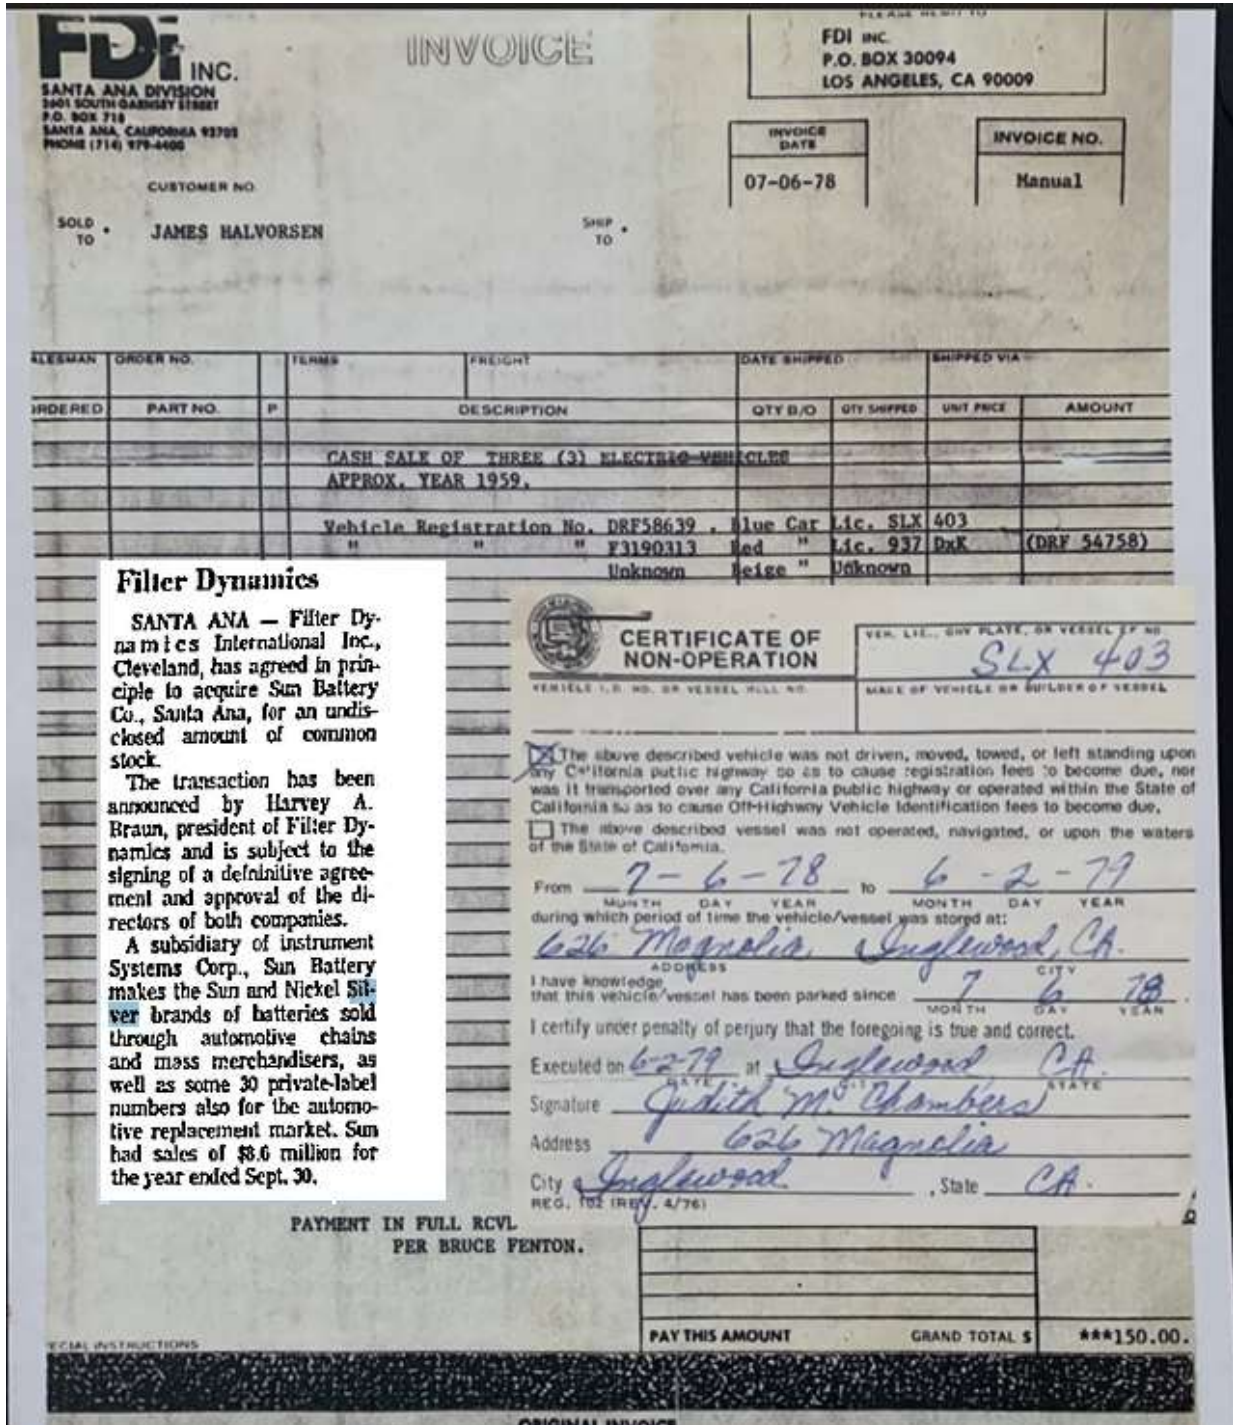 FDI INC.
SANTA ANA DIVISION
2601 SOUTH GARNSEY STREET
P.O. BOX 718
SANTA ANA, CALIFORNIA 92702
PHONE (714) 979-4400
INVOICE
PLEASE REMIT TO
FDI INC.
P.O. BOX 30094
LOS ANGELES, CA 90009
INVOICE DATE
07-06-78
INVOICE NO.
Manual
CUSTOMER NO
SOLD TO
JAMES HALVORSEN
SHIP TO
ALESMAN ORDER NO. TERMS FREIGHT DATE SHIPPED SHIPPED VIA
ORDERED PART NO. P DESCRIPTION QTY B/O QTY SHIPPED UNIT PRICE AMOUNT
CASH SALE OF THREE (3) ELECTRIC VEHICLES
APPROX. YEAR 1959.
Vehicle Registration No. DRF58639 . Blue Car Lic. SLX 403
" " " F3190313 Red " Lic. 937 DxK (DRF 54758)
Unknown Beige " Unknown
Filter Dynamics
SANTA ANA — Filter Dy-
namics International Inc.,
Cleveland, has agreed in prin-
ciple to acquire Sun Battery
Co., Santa Ana, for an undis-
closed amount of common
stock.
The transaction has been
announced by Harvey A.
Braun, president of Filter Dy-
namics and is subject to the
signing of a defninitive agree-
ment and approval of the di-
rectors of both companies.
A subsidiary of instrument
Systems Corp., Sun Battery
makes the Sun and Nickel Sil-
ver brands of batteries sold
through automotive chains
and mass merchandisers, as
well as some 30 private-label
numbers also for the automo-
tive replacement market. Sun
had sales of $8.6 million for
the year ended Sept. 30.
CERTIFICATE OF
NON-OPERATION
VEH. LIC., OHV PLATE, OR VESSEL CF NO.
SLX 403
VEHICLE I.D. NO. OR VESSEL HULL NO.
MAKE OF VEHICLE OR BUILDER OF VESSEL
The above described vehicle was not driven, moved, towed, or left standing upon
any California public highway so as to cause registration fees to become due, nor
was it transported over any California public highway or operated within the State of
California so as to cause Off-Highway Vehicle Identification fees to become due.
The above described vessel was not operated, navigated, or upon the waters
of the State of California.
From 7-6-78 to 6-2-79
MONTH DAY YEAR MONTH DAY YEAR
during which period of time the vehicle/vessel was stored at:
626 Magnolia Inglewood, CA.
ADDRESS CITY
I have knowledge
that this vehicle/vessel has been parked since 7 6 78
MONTH DAY YEAR
I certify under penalty of perjury that the foregoing is true and correct.
Executed on 6-2-79 at Inglewood CA.
DATE CITY STATE
Signature Judith M. Chambers
Address 626 Magnolia
City Inglewood, State CA.
REG. 102 (REV. 4/76)
PAYMENT IN FULL RCVL
PER BRUCE FENTON.
PAY THIS AMOUNT GRAND TOTAL $ ***150.00.
ECIAL INSTRUCTIONS
ORIGINAL INVOICE